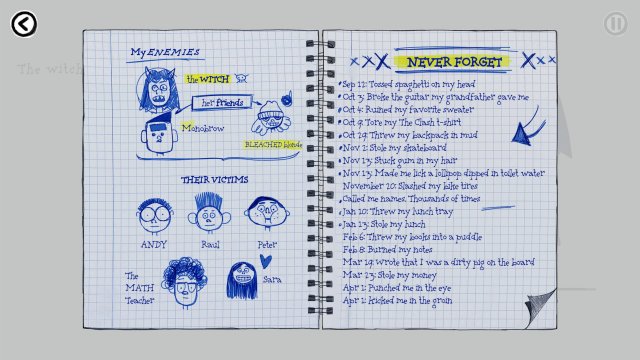 The witch
My ENEMIES
the WITCH
her friends
Monobrow
BLEACHED blonde
THEIR VICTIMS
ANDY
Raul
Peter
The MATH Teacher
Sara
NEVER FORGET
Sep 12: Tossed spaghetti on my head
Oct 3: Broke the guitar my grandfather gave me
Oct 4: Ruined my favorite sweater
Oct 9: Tore my The Clash t-shirt
Oct 29: Threw my backpack in mud
Nov 2: Stole my skateboard
Nov 13: Stuck gum in my hair
Nov 13: Made me lick a lollipop dipped in toilet water
November 20: Slashed my bike tires
Called me names. Thousands of times
Jan 10: Threw my lunch tray
Jan 23: Stole my lunch
Feb 6: Threw my books into a puddle
Feb 8: Burned my notes
Mar 19: Wrote that I was a dirty pig on the board
Mar 23: Stole my money
Apr 1: Punched me in the eye
Apr 1: kicked me in the groin